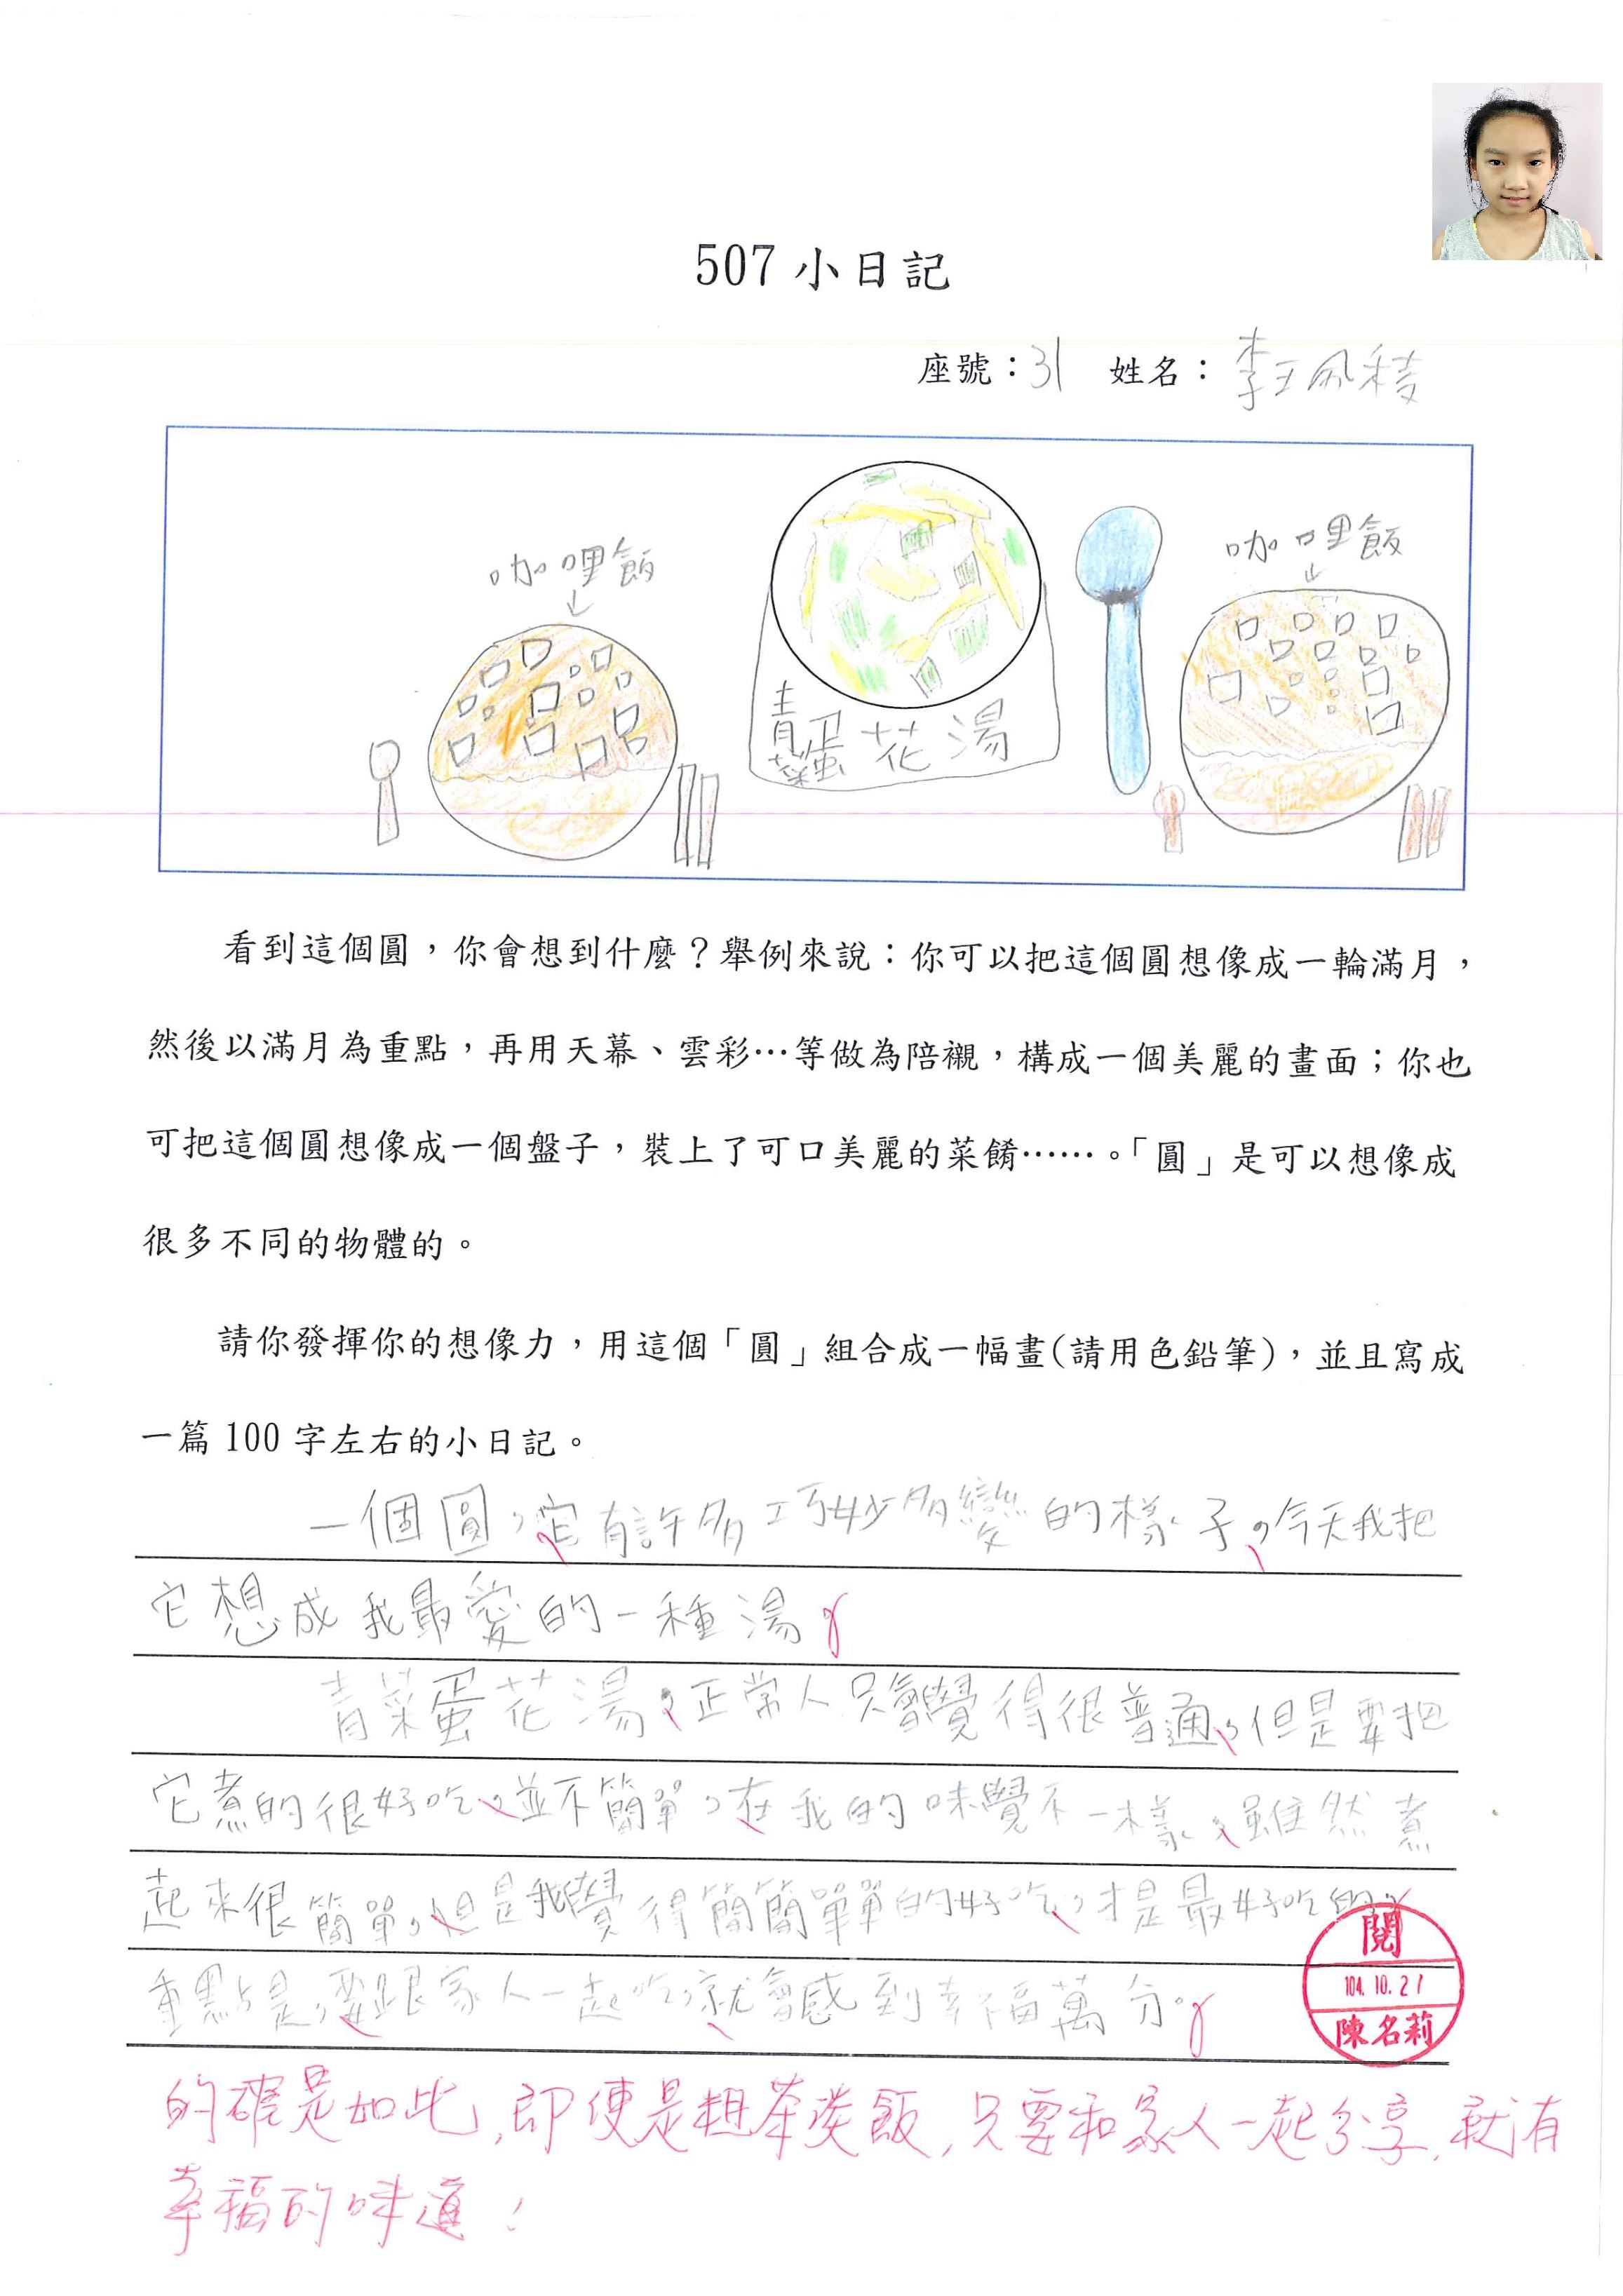 507 小日記
座號：31 姓名：李
咖哩飯
咖哩飯
青菜蛋花湯
看到這個圓，你會想到什麼？舉例來說：你可以把這個圓想像成一輪滿月，
然後以滿月為重點，再用天幕、雲彩…等做為陪襯，構成一個美麗的畫面；你也
可把這個圓想像成一個盤子，裝上了可口美麗的菜餚……。「圓」是可以想像成
很多不同的物體的。
請你發揮你的想像力，用這個「圓」組合成一幅畫(請用色鉛筆)，並且寫成
一篇 100 字左右的小日記。
一個圓，它有許多巧妙多變的樣子，今天我把
它想成我最愛的一種湯。
青菜蛋花湯，正常人只會覺得很普通，但是要把
它煮的很好吃，並不簡單，在我的味覺不一樣，雖然煮
起來很簡單，但是我覺得簡簡單單的好吃，才是最好吃的。
重點是，要跟家人一起吃，就會感到幸福萬分。
閱
104.10.21
陳名莉
的確是如此，即使是粗茶淡飯，只要和家人一起分享，就有
幸福的味道！